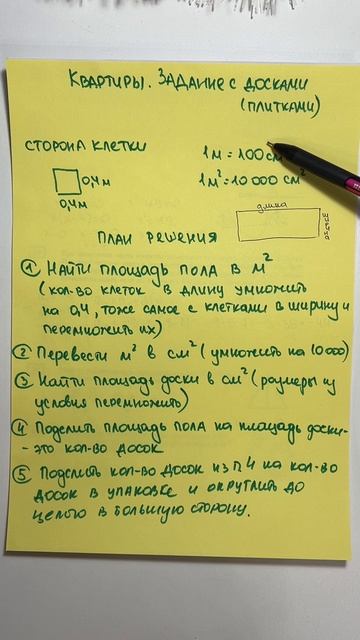 Квартиры. Задание с досками
(плитками)
Сторона клетки
1м = 100см
0,4м
1м² = 10 000 см²
0,4м
длина
ширина
План решения
① Найти площадь пола в м²
(кол-во клеток в длину умножить
на 0,4, тоже самое с клетками в ширину и
перемножить их)
② Перевести м² в см² (умножить на 10000)
③ Найти площадь доски в см² (размеры из
условия перемножить)
④ Поделить площадь пола на площадь доски-
-это кол-во досок
⑤ Поделить кол-во досок из п4 на кол-во
досок в упаковке и округлить до
целого в большую сторону.